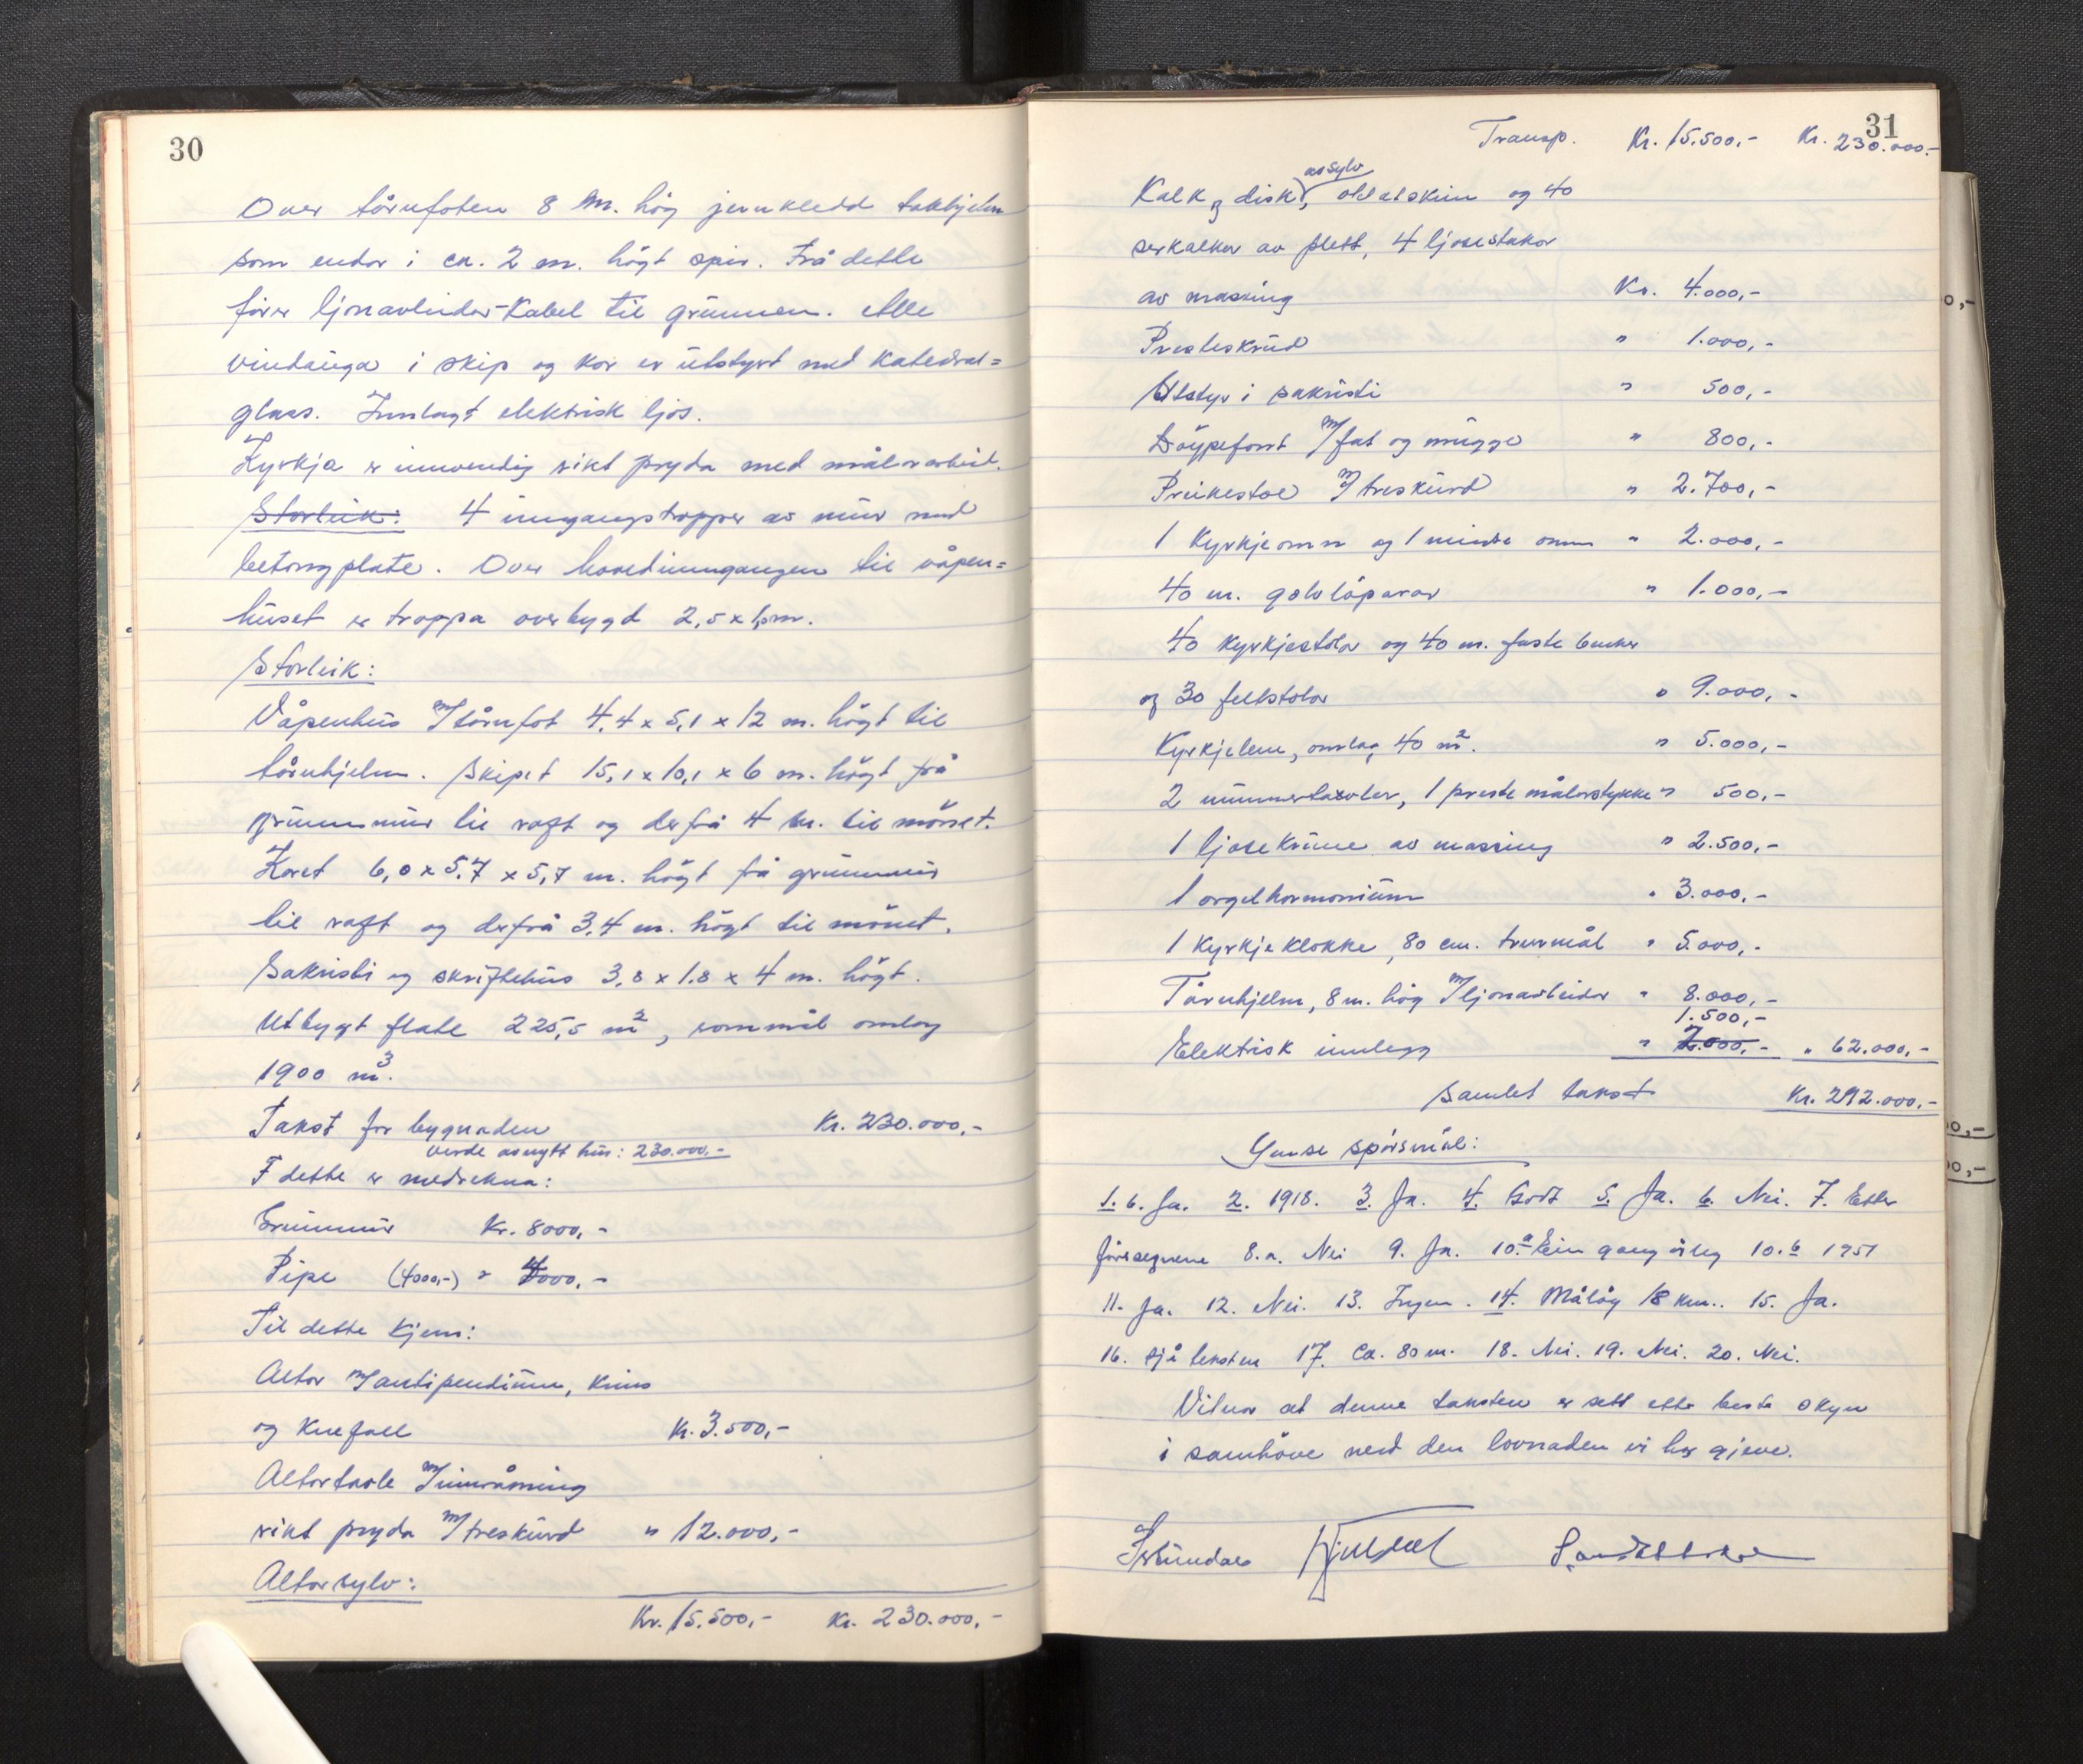 30
Over tårnfoten 8 m. høg jernkledd takhjelm
som endar i ca. 2 m. høgt spir. Frå dette
fører ljonavleidar-kabel til grunnen. Alle
vindauga i skip og kor er utstyrt med katedral=
glass. Innlagt elektrisk ljos.
Kyrkja er innvendig rikt pryda med målararbeid.
Storleik: 4 inngangstropper av mur med
betongplate. Over hovedinngangen til våpen=
huset er troppa overbygd 2,5 x m.
Storleik:
Våpenhus m/tårnfot 4,4 x 5,1 x 12 m. högt til
tårnhjelm. Skipet 15,1 x 10,1 x 6 m. högt frå
grunnmur til raft og derfrå 4 m. til mönet.
Koret 6,0 x 5.7 x 5,7 m. högt frå grunnmur
til raft og derfrå 3,4 m. högt til mönet.
Sakristi og skriftehus 3,8 x 1.8 x 4 m. högt.
Utbygt flate 225,5 m², rommål omlag
1900 m³.
Takst for bygnaden Kr. 230.000,-
Verde av nytt hus: 230.000,-
I dette er medrekna:
Grunnmur Kr. 8000,-
Pipe (4000,-) " 4000,-
Til dette kjem:
Altar m/antipendium, krins
og knefall Kr. 3.500,-
Altartavle m/innråming
rikt pryda m/treskurd " 12.000,-
Altarsylv:
Kr. 15.500,- Kr. 230.000,-
31
Transp. Kr. 15.500,- Kr. 230.000.-
av sylv
Kalk og disk, oblatskrin og 40
serkalkar av plett, 4 ljosestakar
av massing Kr. 4.000,-
Presteskrud " 1.000,-
Utstyr i sakristi " 500,-
Döypefont m/fat og mugge " 800,-
Preikestol m/treskurd " 2.700,-
1 kyrkjeomn og 1 mindre omn " 2.000,-
40 m. golvlöparar " 1.000,-
40 kyrkjestolar og 40 m. faste benker
og 30 feltstolar " 9.000,-
Kyrkjelem, omlag 40 m². " 5.000,-
2 nummertavler, 1 preste målarstykke " 500,-
1 ljosekrune av massing " 2.500,-
1 orgelharmonium " 3.000,-
1 kyrkjeklokke, 80 cm. tverrmål " 5.000,-
Tårnhjelm, 8 m. høg m/ljonavleidar " 8.000,-
1.500,-
Elektrisk innlegg " 2.000,- " 62.000,-
Samlet takst Kr. 292.000,-
Ymse spörsmål:
1. b. Ja. 2. 1918. 3. Ja. 4. Godt 5. Ja. 6. Nei. 7. Etter
föresegnene 8.a. Nei 9. Ja. 10.a Ein gang årleg 10.b 1951
11. Ja. 12. Nei. 13. Ingen. 14. Måløy 18 km.. 15. Ja.
16. sjå teksten 17. Ca. 80 m. 18. Nei. 19. Nei. 20. Nei.
Vitnar at denne taksten er sett etter beste skyn
i samhöve med den lovnaden vi har gjeve.
0,-
00,-
00,-